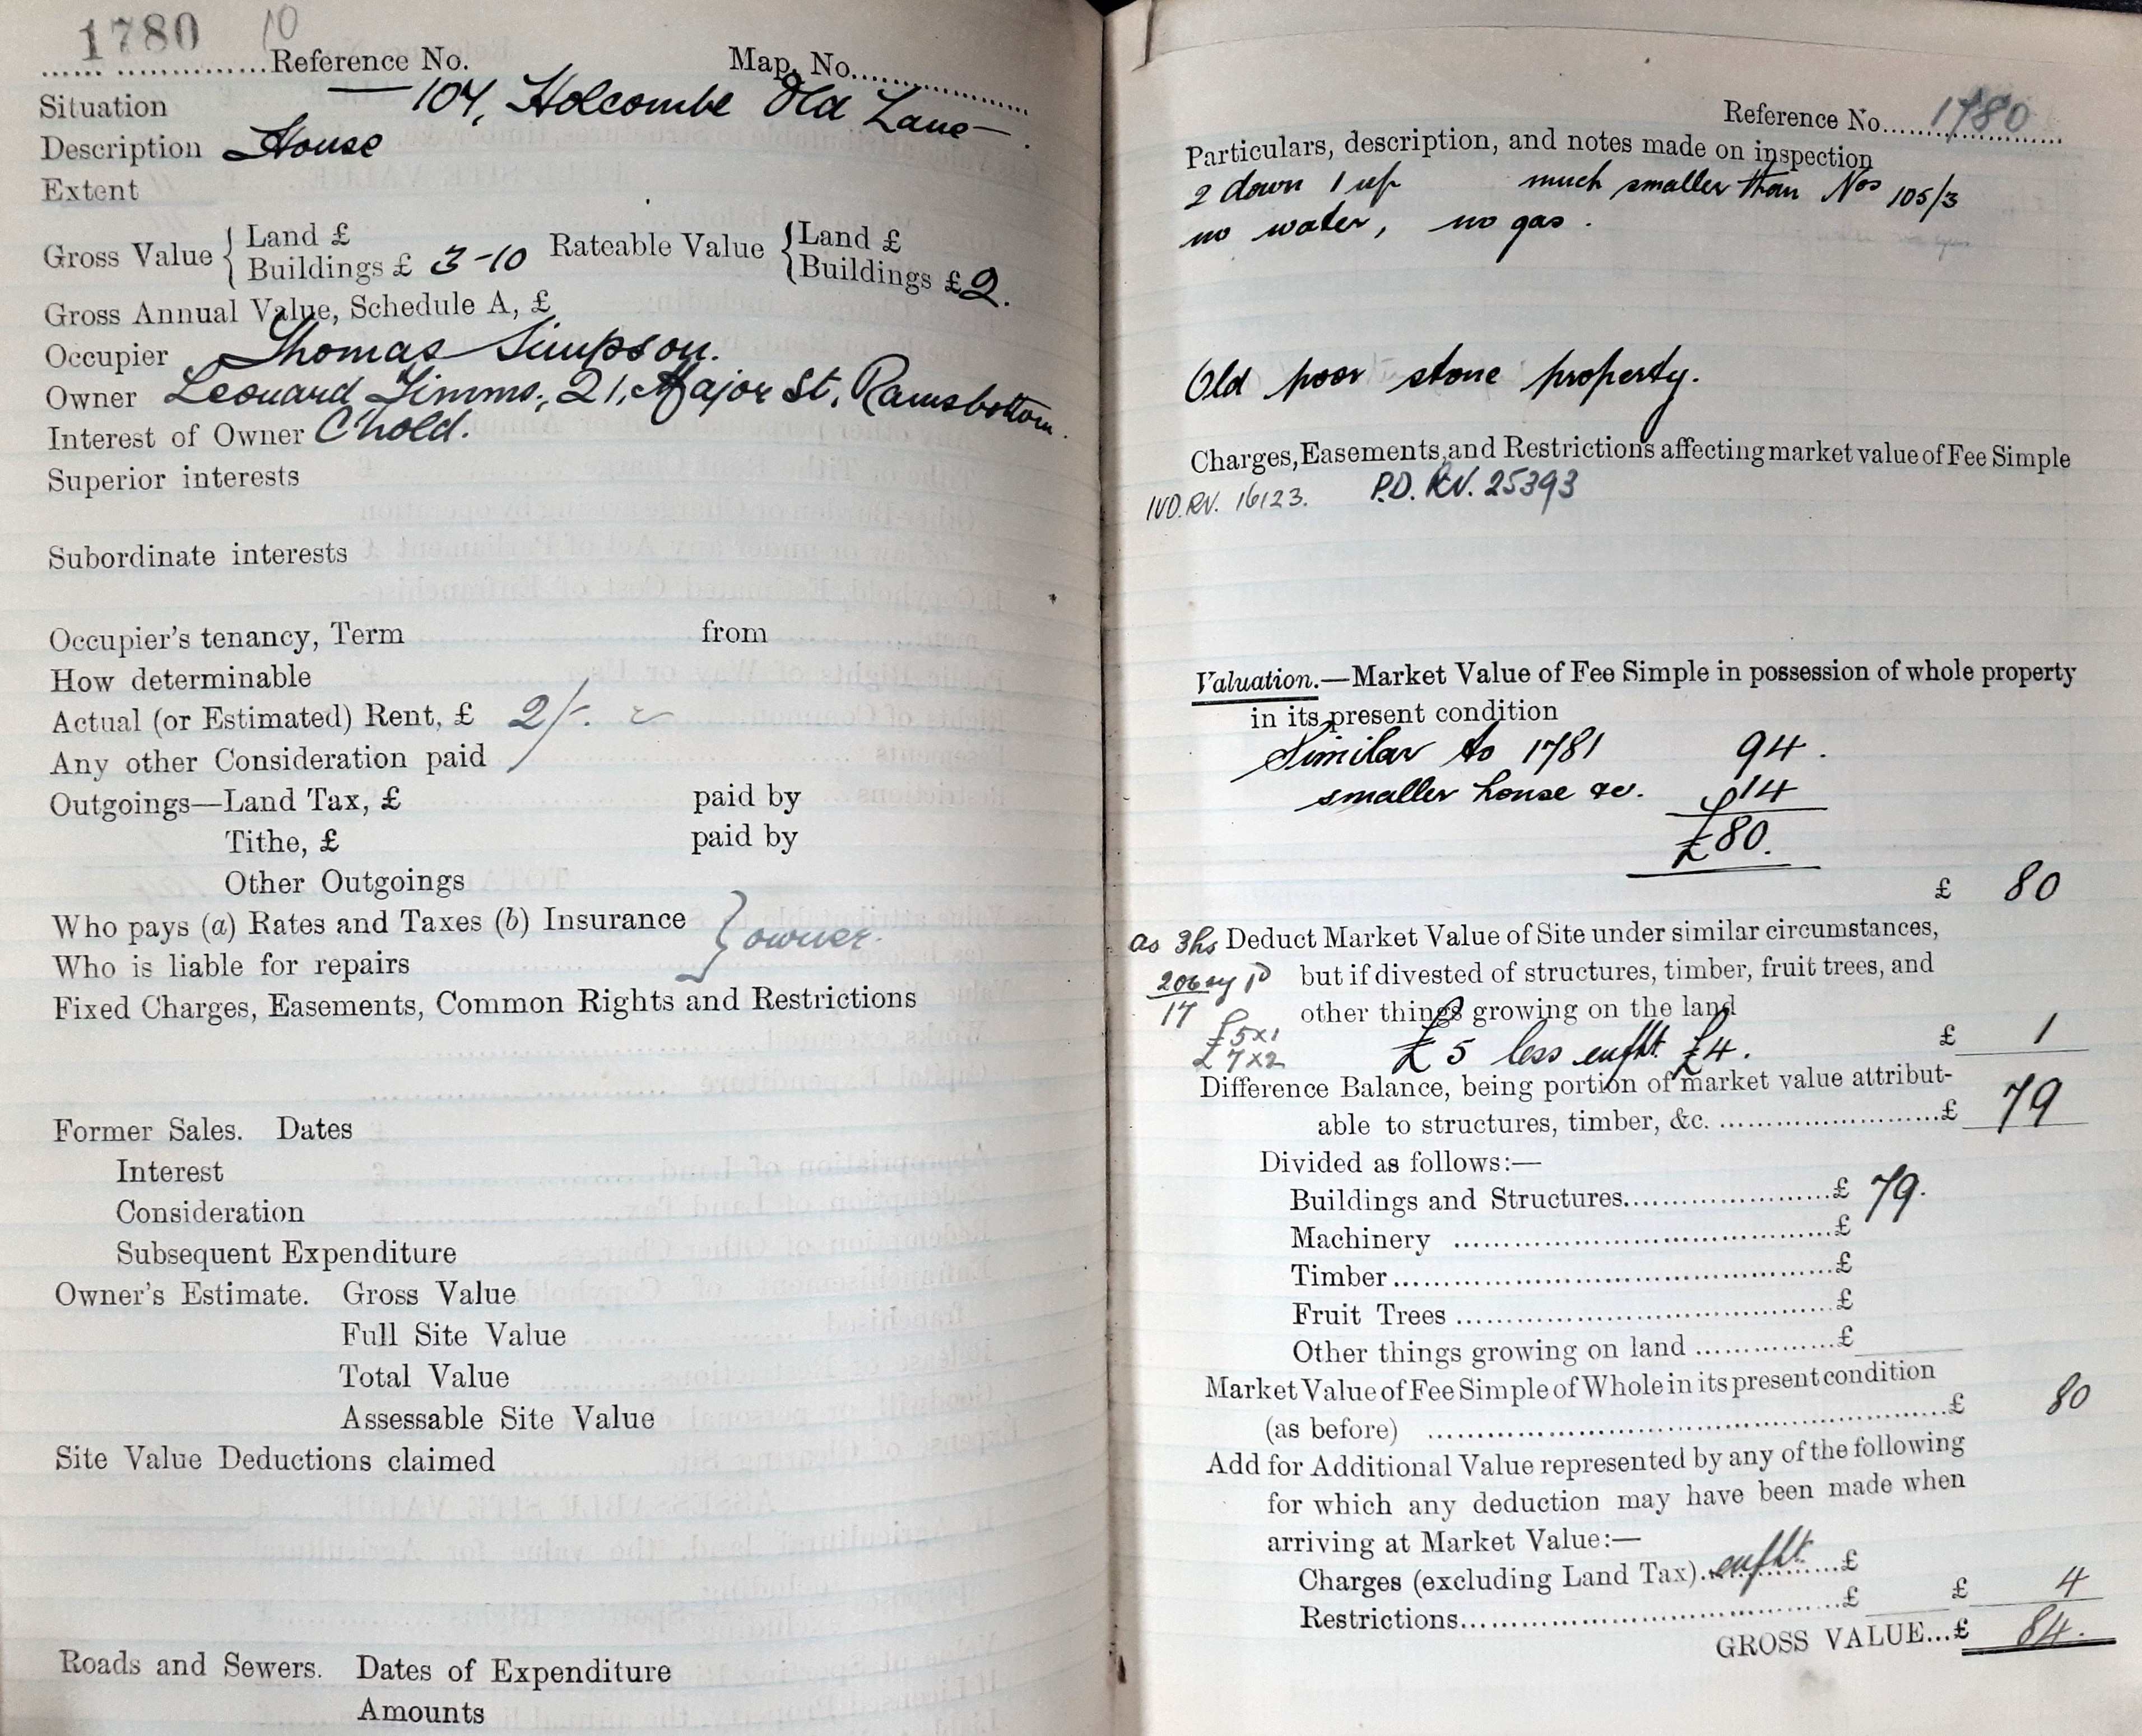 1780 10
Reference No. Map. No.
Situation 104, Holcombe Old Lane
Description House
Extent
Gross Value { Land £
Buildings £ 3-10 Rateable Value { Land £
Buildings £ 2.
Gross Annual Value, Schedule A, £
Occupier Thomas Simpson.
Owner Leonard Timms, 21, Major St, Ramsbottom.
Interest of Owner C'hold.
Superior interests
Subordinate interests
Occupier's tenancy, Term from
How determinable
Actual (or Estimated) Rent, £ 2/-.
Any other Consideration paid
Outgoings—Land Tax, £ paid by
Tithe, £ paid by
Other Outgoings
Who pays (a) Rates and Taxes (b) Insurance } owner.
Who is liable for repairs
Fixed Charges, Easements, Common Rights and Restrictions
Former Sales. Dates
Interest
Consideration
Subsequent Expenditure
Owner's Estimate. Gross Value
Full Site Value
Total Value
Assessable Site Value
Site Value Deductions claimed
Roads and Sewers. Dates of Expenditure
Amounts
Reference No. 1780
Particulars, description, and notes made on inspection
2 down 1 up much smaller than Nos 105/3
no water, no gas.
Old poor stone property.
Charges, Easements, and Restrictions affecting market value of Fee Simple
IVD. RV. 16123. P.D. RV. 25393
Valuation.—Market Value of Fee Simple in possession of whole property
in its present condition
Similar to 1781 94.
smaller house &c. 14
£80.
£ 80
as 3hs Deduct Market Value of Site under similar circumstances,
206 sy but if divested of structures, timber, fruit trees, and
17 other things growing on the land
£5x1
£7x2 £5 less enfht. £4. £ 1
Difference Balance, being portion of market value attribut-
able to structures, timber, &c. £ 79
Divided as follows:—
Buildings and Structures £ 79.
Machinery £
Timber £
Fruit Trees £
Other things growing on land £
Market Value of Fee Simple of Whole in its present condition
(as before) £ 80
Add for Additional Value represented by any of the following
for which any deduction may have been made when
arriving at Market Value:—
Charges (excluding Land Tax) enfht. £
Restrictions £ £ 4
GROSS VALUE...£ 84.